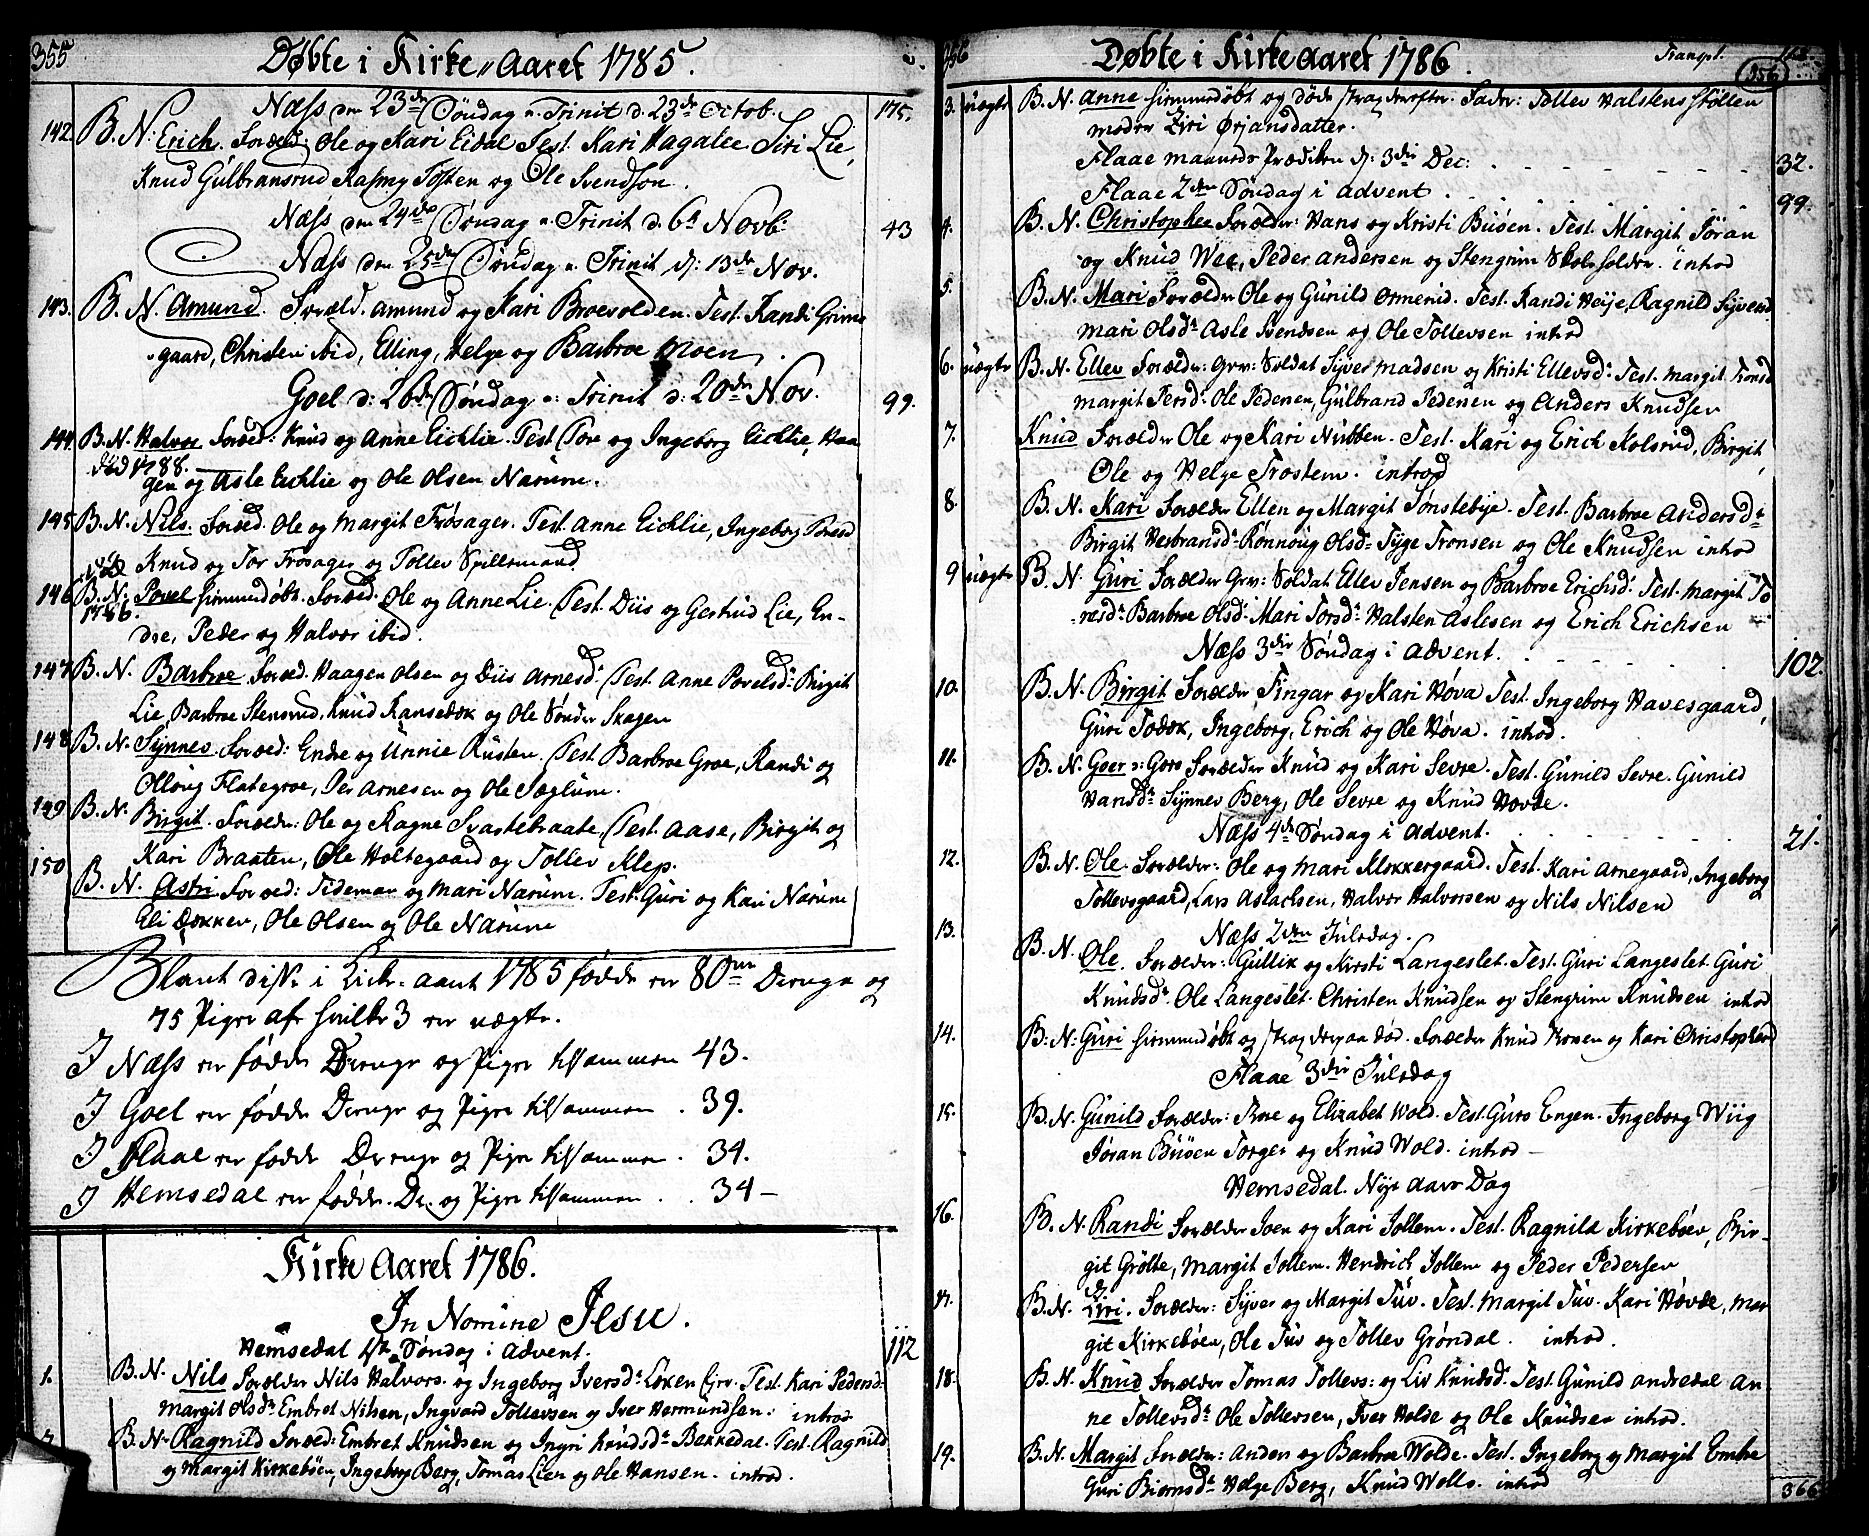 355
Døbte i Kirke Aaret 1785.
Næss den 23de Søndag a. Trinit d. 23de Octob. 175.
142. B. N: Erich. Foræld: Ole og Kari Eidal Test. Kari Hagalie Siri Lie,
Knud Gulbransrud Rasmg Tosten og Ole Svendson.
Næss den 24de Søndag a. Trinit d. 6te Novb: 43
Næss den 25de Søndag a. Trinit d: 13de Nov.
143. B. N. Amund. Foræld. Amund og Kari Broevolden. Test. Randi Grims
gaard, Christen ibid, Elling, Helge og Barbroe Moen.
Goel d: 26de Søndag a. Trinit d: 20de Nov. 99.
144. B. N. Halvor Foræd: Knud og Anne Eichlie. Test Tore og Ingeborg Eichlie, Haa
død 1788.
gen og Asle Eichlie og Ole Olsen Narum.
145 B. N. Nils. Foræd. Ole og Margit Frøsager. Test. Anne Eichlie, Ingeborg
Knud og Tor Frøsager og Tollev Spillemand
146 B. N. Povel hiemmedøbt. Foræd. Ole og Anne Lie. Test. Diis og Gertrud Lie, En-
1786.
dre, Peder og Halvor ibid.
147 B. N. Barbroe Foræd. Haagen Olsen og Diis Arnesd: Test. Anne Povelsd: Birgit
Lie, Barbroe Stensrud, Knud Ransedok og Ole Sønder Skagen
148 B. N. Synnev Foræd: Endre og Unnie Rusten. Test Barbroe Groe, Randi og
Olloug Fladegroe, Per Arnesen og Ole Sæglum.
149 B. N. Birgit. Forælder: Ole og Ragne Svartebraate, Test. Aase, Birgit og
Kari Braaten, Ole Holtegaard og Tollev Klep.
150 B. N. Astri Foræed: Tideman og Mari Narum. Test. Guri og Kari Narum
Eli Dokken, Ole Olsen og Ole Narum
Blant disse i Kirke-aaret 1785 fødde er 80 Drenge og
75 Piger af hvilke 3 er uægte.
I Næss er fødde Drenge og Piger tilsammen 43.
I Goel er fødde Drenge og Piger tilsammen . 39.
I Flaae er fødde Drenge og Piger tilsammen . 34.
I Hemsedal er fødde Dr. og Piger tilsammen . . 34 –
Kirke Aaret 1786.
In Nomine Jesu.
Hemsedal 1te Søndag i Advent. 112
1. B. N. Nils Forælder Nils Halvors. og Ingeborg Iversd: Løken Test. Kari Pedersd:
Margit Olsd: Embret Nilsen, Ingvord Tollevsen og Iver Hermundsen. introd
B. N. Ragnild Foræd: Embret Knudsen og Ingri Knudsd: Bakkedal. Test. Ragnild
og Margit Kirkebøen, Ingeborg Berg, Tomas Lien og Ole Hansen. introd.
356
Døbte i Kirke Aaret 1786. Transpt.
356
3. uægte B. N. Anne hiemmedøbt og døde strax derefter. Fader: Tollev Halstens Støllen
moder Ziri Ørjansdatter.
Flaae maaneds Prædiken d: 3die Dec: 32.
Flaae 2den Søndag i Advent. 99.
4. B. N. Christopher Forælder: Hans og Kristi Buøen. Test. Margit Jøran
og Knud Peder Andersen og Stengrim Skoleholder. introd
5. B. N. Mari Forælder Ole og Gunild Ormerud. Test. Randi Heije, Ragnild Syversd
Mari Olsd: Asle Svendsen og Ole Tollevsen introd
6. uægte B. N. Ellev Forælder: Grv: Soldat Syver Madsen og Kristi Ellevsd: Test. Margit Tronsd
Margit Persd: Ole Pedersen, Gulbrand Pedersen og Anders Knudsen
7. Knud Forælder Ole og Kari Nubben. Test. Kari og Erich Kolsrud, Birgit,
Ole og Helge Trostem. introd
8. B. N. Kari Forælder Ellen og Margit Tønstebye. Test. Barbroe Andersd:
Birgit Herbransd: Rønnoug Olsd: Tyge Tronsen og Ole Knudsen introd
9 uægte B. N. Guri Forælder Grv: Soldat Ellev Jensen og Barbroe Erichsd: Test. Margit To
resd: Barbroe Olsd: Mari Torsd: Halsten Aslesen og Erich Erichsen
Næss 3die Søndag i Advent. 102.
10. B. N. Birgit Forælder Fingar og Kari Høva Test. Ingeborg Havesgaard,
Guri Todok, Ingeborg, Erich og Ole Høva. introd.
11. B. N. Goer : Goro Forælder Knud og Kari Sevre. Test. Gunild Sevre. Gunild
Hansd: Synnev Berg, Ole Sevre og Knud Hovde.
Næss 4de Søndag i Advent. 21.
12. B. N. Ole. Forælder: Ole og Mari Klokkergaard. Test. Kari Arnegaard, Ingeborg
Tollevsgaard, Lars Aslachsen, Halvor Halvorsen og Nils Nilsen
Næss 2den Juledag.
13. B. N. Ole. Forælder: Gullik og Kirsti Langeslet. Test. Guri Langeslet. Guri
Knudsd: Ole Langeslet. Christen Knudsen og Stengrim Knudsen introd
14. B. N: Guri hiemmedøbt og strax derpaa død. Forælder Knud og Kari Christophersd
Flaae 3die Juledag
15. B. N. Gunild Forælder: Tore og Elizabet Wold. Test. Guro Engen. Ingeborg Wiig
Jøran Buøen Torger og Knud Wold. introd –
Hemsedal. Nye Aars Dag
16. B. N. Randi Forælder Joen og Kari Jollem. Test. Ragnild Kirkebøen, Bir-
git Grølte, Margit Jollem. Hendrich Jollem og Peder Pedersen
17. B. N. Ziri. Forælder: Syver og Margit Tuv. Test. Margit Tuv. Kari Høvde, Mar
git Kirkebøen, Ole Tuv og Tollev Grøndal. introd.
18. B. N. Knud Forælder Tomas Tollevs: og Liv Knudsd. Test. Gunild Andredal An
ne Tollevsd: Ole Tollevsen, Iver Holde og Ole Knudsen introd.
19. B. N. Margit Forælder: Anders og Barbroe Wolde. Test. Ingeborg og Margit Embre
Guri Biørnsd: Helge Berg, Knud Wolls. introd
366